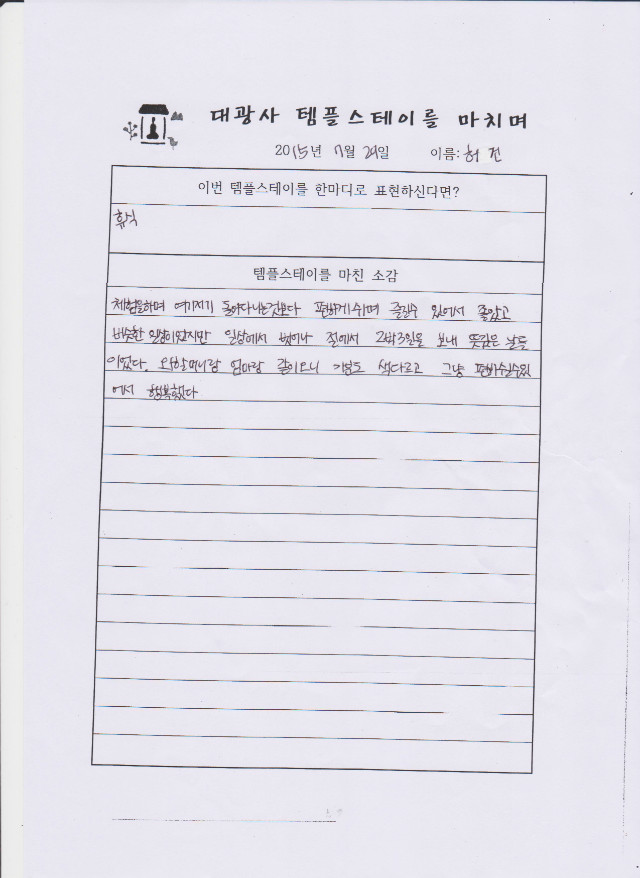 대광사 템플스테이를 마치며
2015년 7월 29일 이름: 허 진
이번 템플스테이를 한마디로 표현하신다면?
휴식
템플스테이를 마친 소감
체험을하며 여기저기 돌아다니는것보다 편하게쉬며 즐길수 있어서 좋았고
비슷한 일상이었지만 일상에서 벗어나 절에서 2박3일을 보내 뜻깊은 날들
이었다. 외할머니랑 엄마랑 같이오니 기분도 색다르고 그냥 편하쉴수있
어서 행복했다